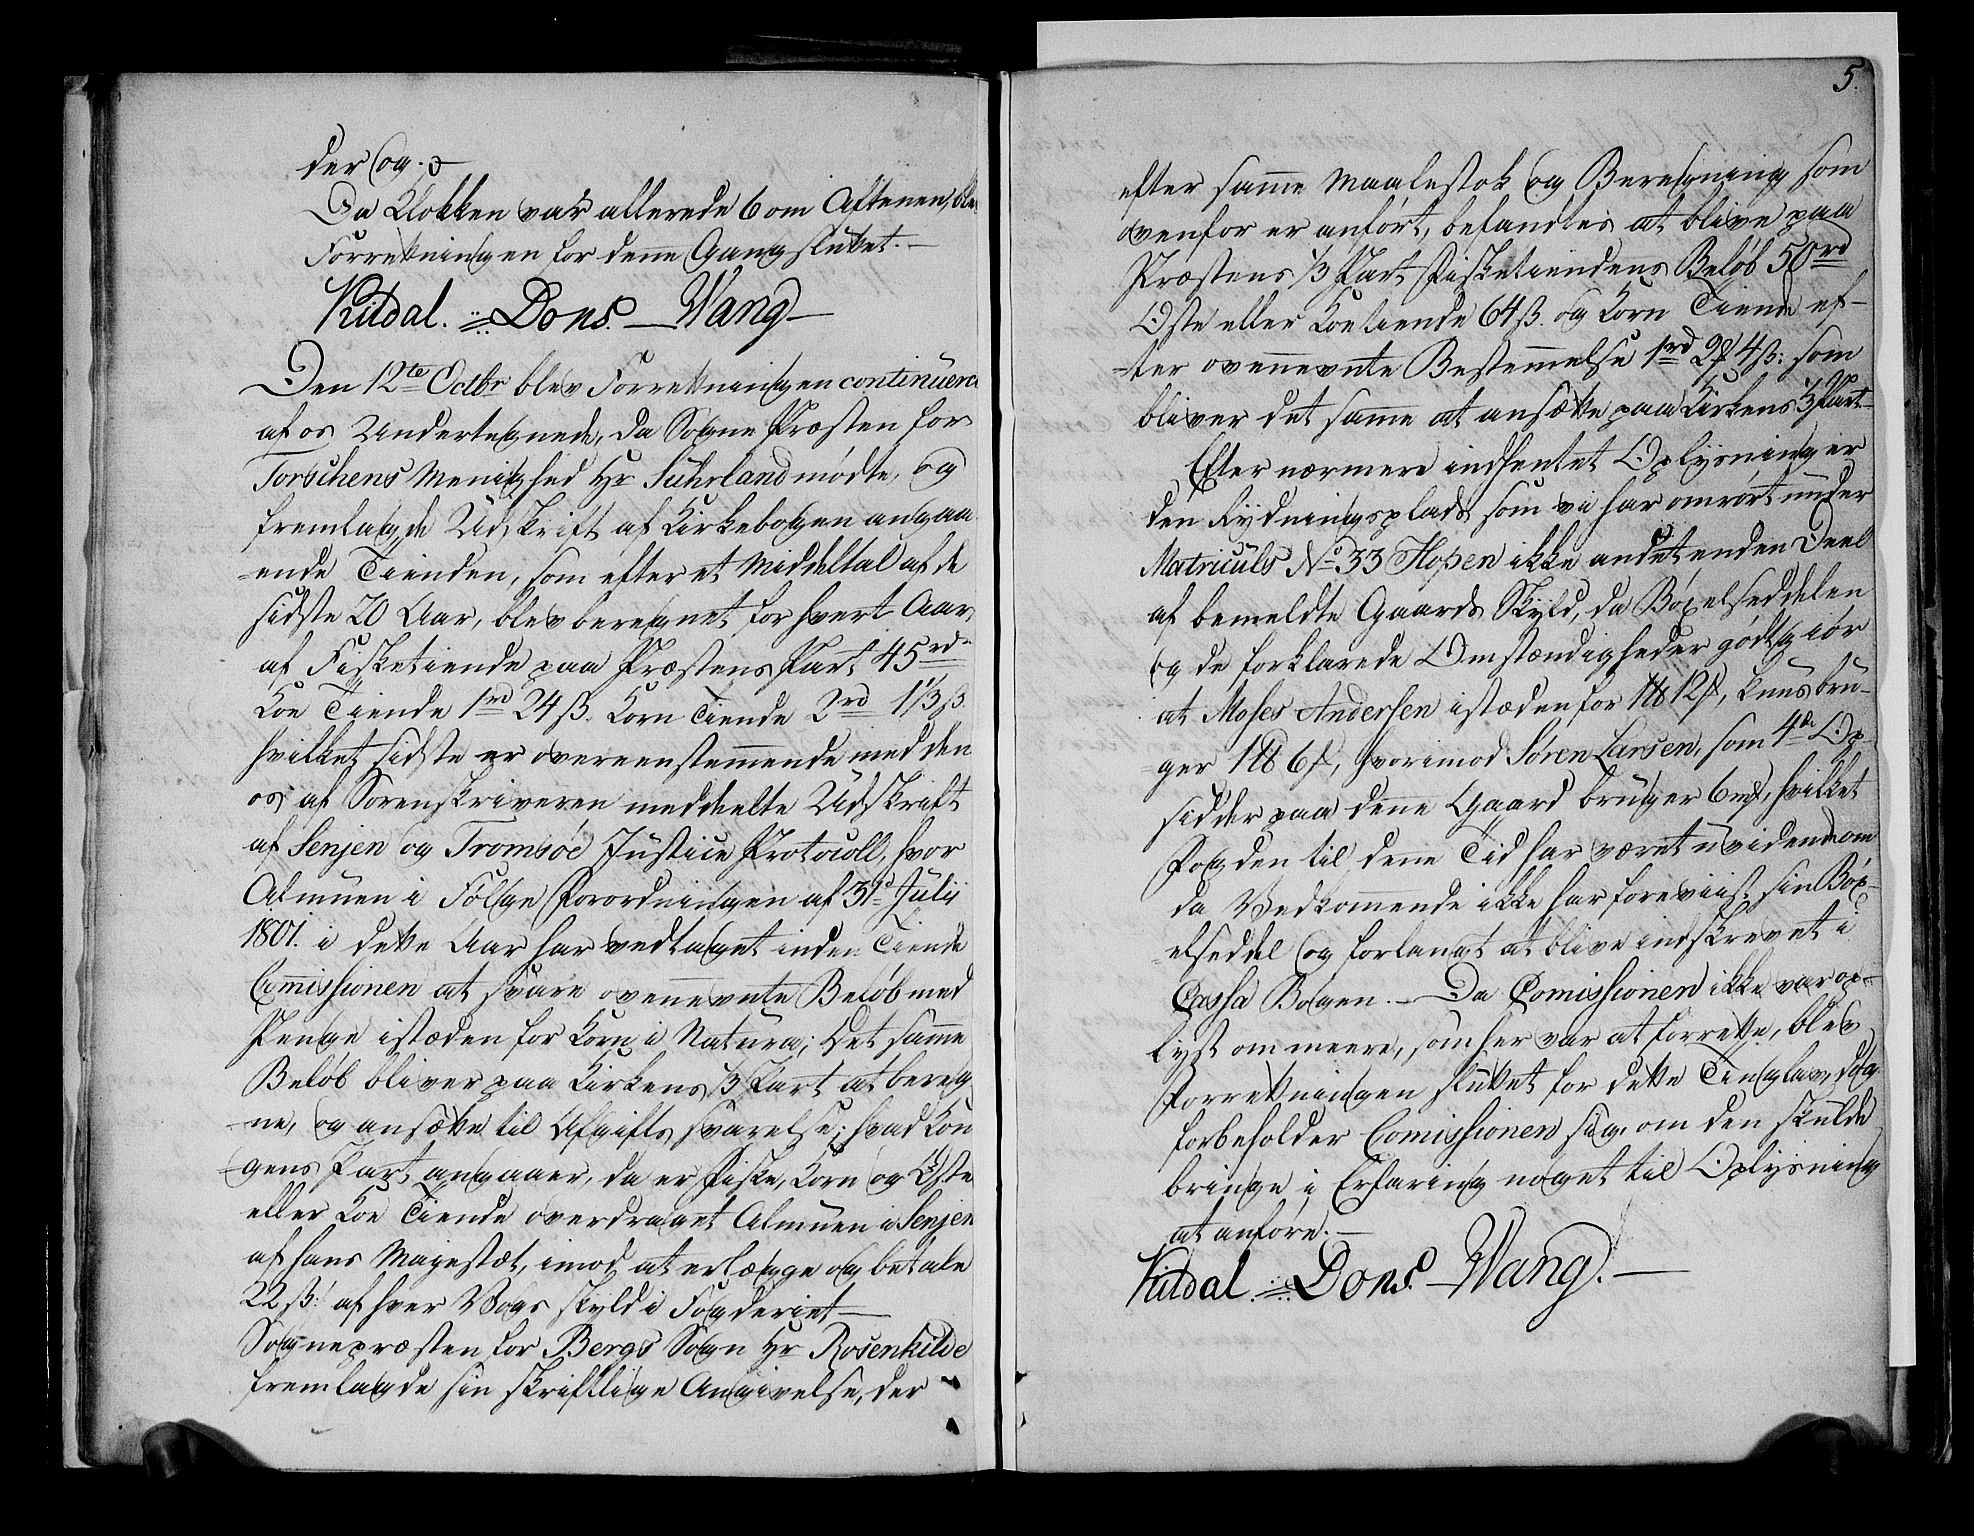 der og. 
Da Klokken var allerede 6 om Aftenen, blev
Forretningen for denne Gang sluttet. –
Kildal. Dons. – Wang –
Den 12te Octbr blev Forretningen continueret
af os Undertegnede, da Sogne Præsten for
Torschens Menighed Hr Suhrland mødte, og
fremlagde Udskrift af Kirkebogen angaa
-ende Tienden, som efter et Middeltal af de
sidste 20 Aar, blev beregnet for hvert Aar,
af Fisketiende paa Præstens Part 45 rd
Koe Tiende 1rd 24 ß. Korn Tiende 2rd 1 1/3 ß.
hvilket sidste er overeenstemmende med den
os af Sorenskriveren meddeelte Udskrift
af Senjen og Tromsøe Justice Protocoll, hvor
Almuen i Følge Forordningen af 31te Julii
1801. i dette Aar har vedtaget inden Tiende
Comissionen at svare ovennevnte Beløb med
Penge istæden for Korn i Natura; Det samme
Beløb bliver paa Kirkens 1/3 Part at bereg
-ne, og ansætte til Afgifts svarelse; hvad Kon
-gens Part angaaer, da er Fiske, Korn og Oste
eller Koe Tiende overdraget Almuen i Senjen
af hans Majestæt, imod at erlægge og betale
22 ß: af hver Vogs skyld i Fogderiet –
Sognepræsten for Bergs Sogn Hr Rosenkilde
fremlagde sin skriftlige Angivelse, der
5.
efter samme Maalestok og Beregning som
ovenfor er anført, befandtes at blive paa
Præstens 1/3 Part Fisketiendens Beløb 50 rd
Oste eller Koetiende 64 ß. og Korn Tiende ef-
-ter ovennevnte Bestemmelse 1rd 4 ß: som
bliver det samme at ansætte paa Kirkens 1/3 Part –
Efter nærmere indhentet Oplysning er
den Rydningsplads som vi har omrørt under
Matriculs No 33 Hopen ikke andet enden Deel
af bemeldte Gaards Skyld, da Bøxelseddelen
og de forklarede Omstændigheder godtgiør
at Moses Andersen istæden for 1 12, kuns bru-
-ger 1 6, hvorimod Søren Larsen, som 4de Op-
sidder paa denne Gaard bruger 6, hvilket
Fogden til denne Tid har været uvidende om
da Vedkommende ikke har foreviist sin Bøx-
-elseddel og forlangt at blive indskrevet i
Cassa Bogen. – Da Comissionen ikke var op-
lyst om meere, som her var at forrette, blev
Forretningen sluttet for dette Tinglav, dog
forbeholder Comissionen sig, om den skulde
bringe i Erfaring noget til Oplysning
at anføre. –
Kildal. Dons. – Wang. –